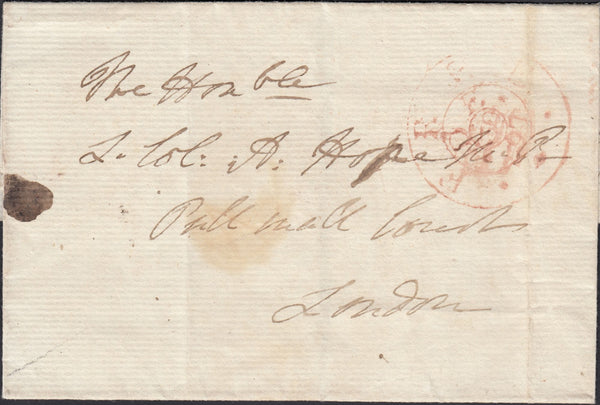 The Honble
L. Col: A: Hope M. P.
Pall mall Court
London